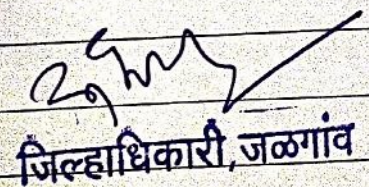 जिल्हाधिकारी, जळगांव